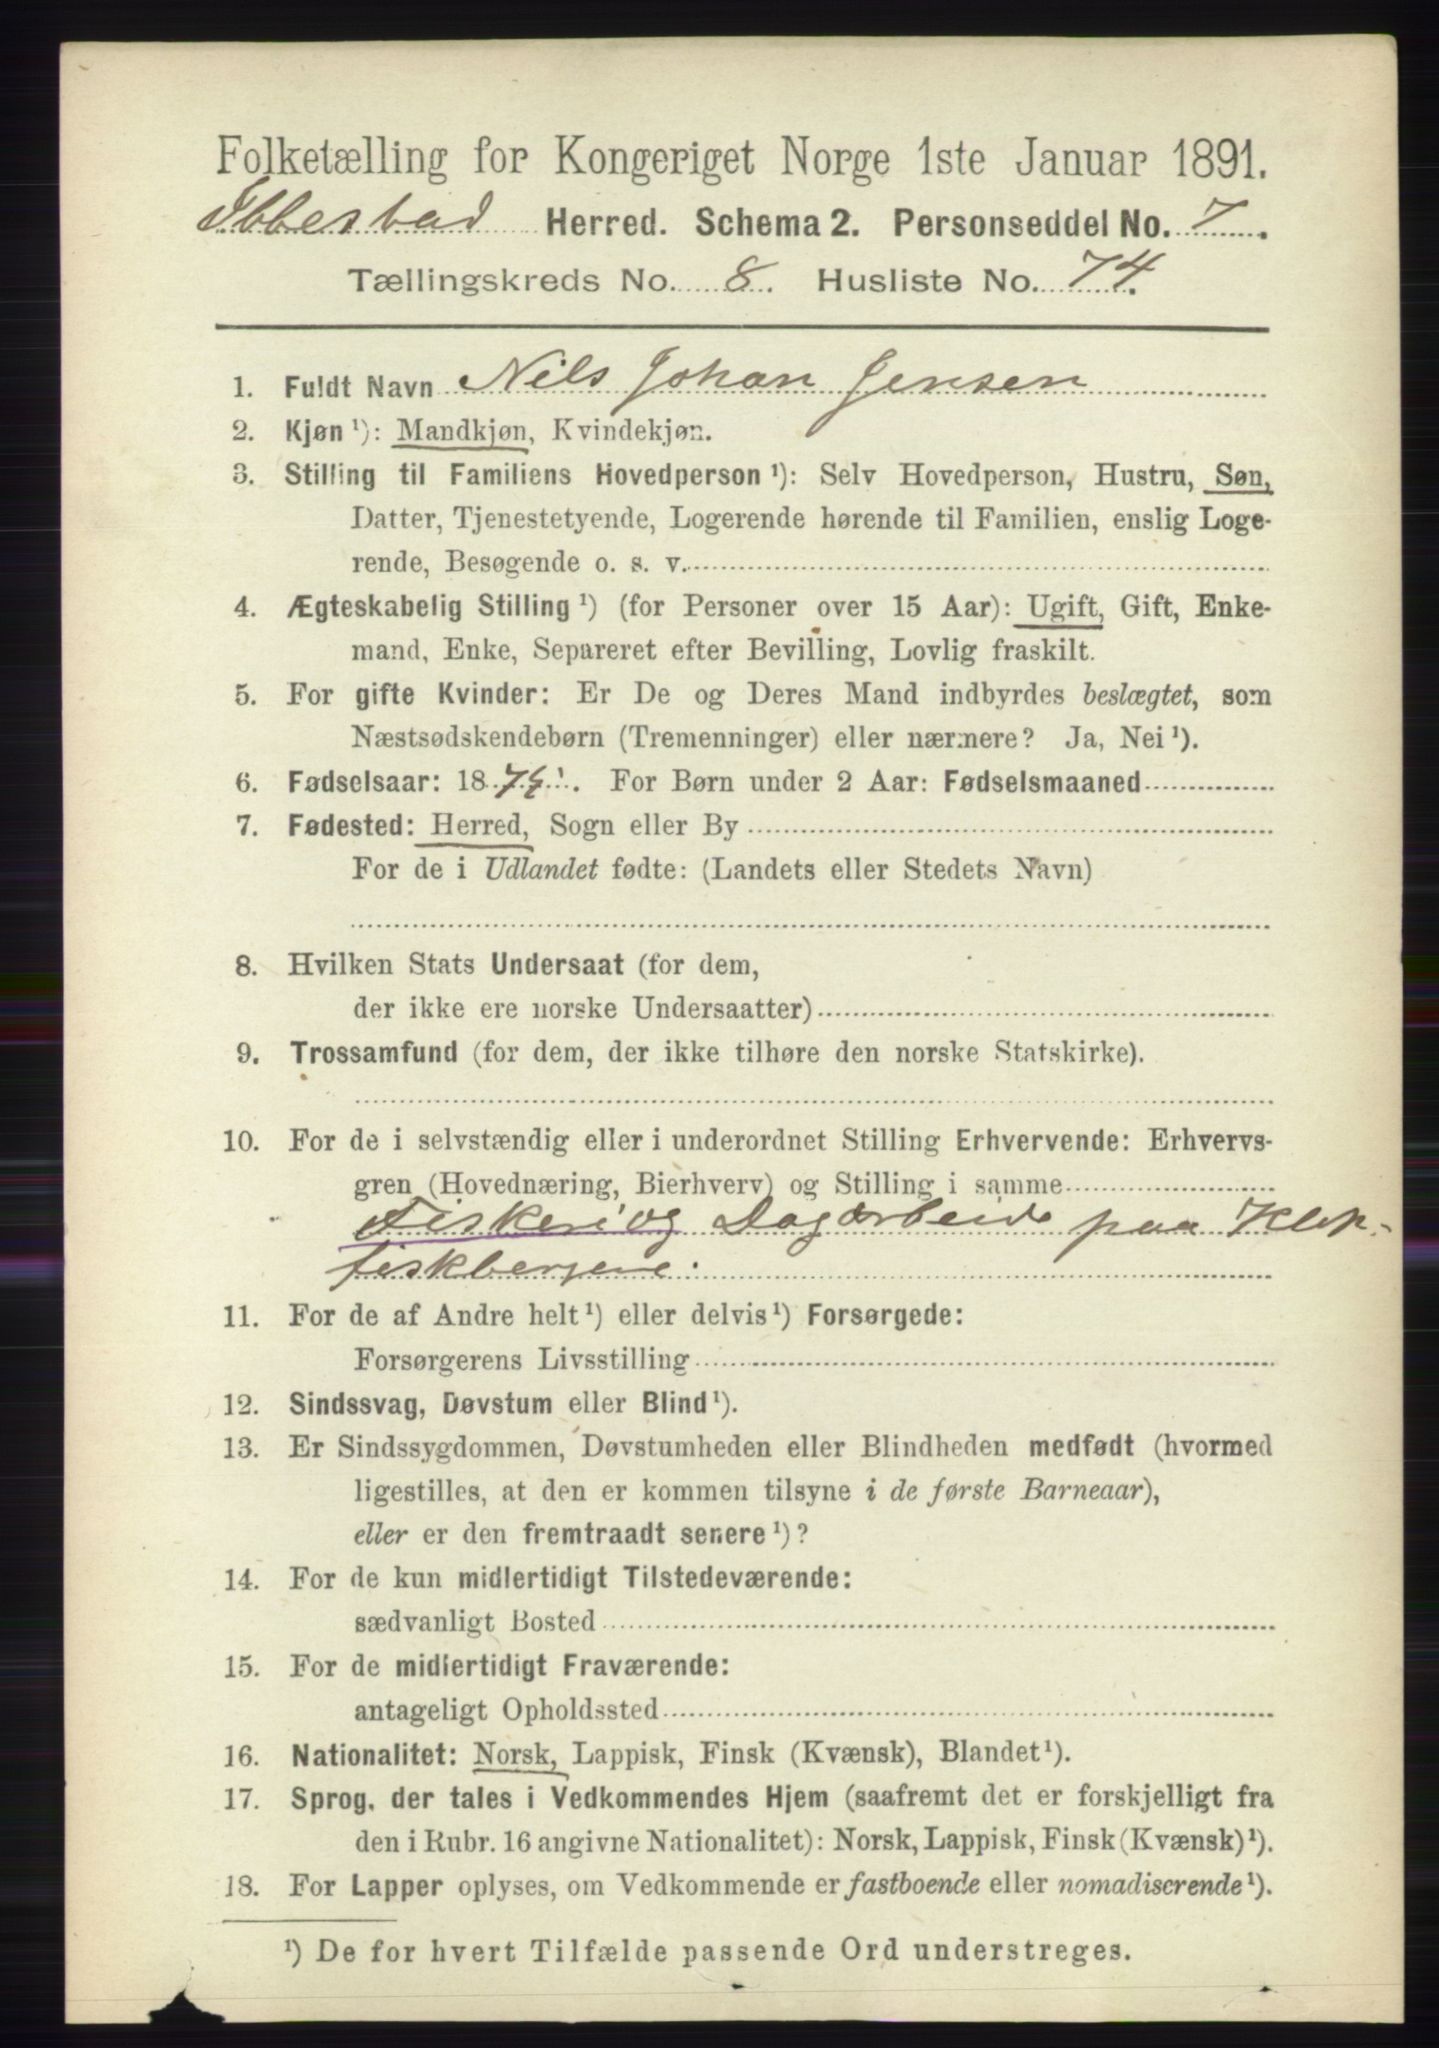 Folketælling for Kongeriget Norge 1ste Januar 1891.
Ibbestad Herred. Schema 2. Personseddel No. 7.
Tællingskreds No. 8. Husliste No. 74.
1. Fuldt Navn Nils Johan Jensen
2. Kjøn ¹): Mandkjøn, Kvindekjøn.
3. Stilling til Familiens Hovedperson ¹): Selv Hovedperson, Hustru, Søn,
Datter, Tjenestetyende, Logerende hørende til Familien, enslig Loge-
rende, Besøgende o. s. v.
4. Ægteskabelig Stilling ¹) (for Personer over 15 Aar): Ugift, Gift, Enke-
mand, Enke, Separeret efter Bevilling, Lovlig fraskilt.
5. For gifte Kvinder: Er De og Deres Mand indbyrdes beslægtet, som
Næstsødskendebørn (Tremenninger) eller nærmere? Ja, Nei ¹).
6. Fødselsaar: 1874. For Børn under 2 Aar: Fødselsmaaned
7. Fødested: Herred, Sogn eller By
For de i Udlandet fødte: (Landets eller Stedets Navn)
8. Hvilken Stats Undersaat (for dem,
der ikke ere norske Undersaatter)
9. Trossamfund (for dem, der ikke tilhøre den norske Statskirke).
10. For de i selvstændig eller i underordnet Stilling Erhvervende: Erhvervs-
gren (Hovednæring, Bierhverv) og Stilling i samme
Fiskeri og Dagarbeide paa Klip-
fiskbergene.
11. For de af Andre helt ¹) eller delvis ¹) Forsørgede:
Forsørgerens Livsstilling
12. Sindssvag, Døvstum eller Blind ¹).
13. Er Sindssygdommen, Døvstumheden eller Blindheden medfødt (hvormed
ligestilles, at den er kommen tilsyne i de første Barneaar),
eller er den fremtraadt senere ¹)?
14. For de kun midlertidigt Tilstedeværende:
sædvanligt Bosted
15. For de midlertidigt Fraværende:
antageligt Opholdssted
16. Nationalitet: Norsk, Lappisk, Finsk (Kvænsk), Blandet ¹).
17. Sprog, der tales i Vedkommendes Hjem (saafremt det er forskjelligt fra
den i Rubr. 16 angivne Nationalitet): Norsk, Lappisk, Finsk (Kvænsk) ¹).
18. For Lapper oplyses, om Vedkommende er fastboende eller nomadiserende ¹).
¹) De for hvert Tilfælde passende Ord understreges.